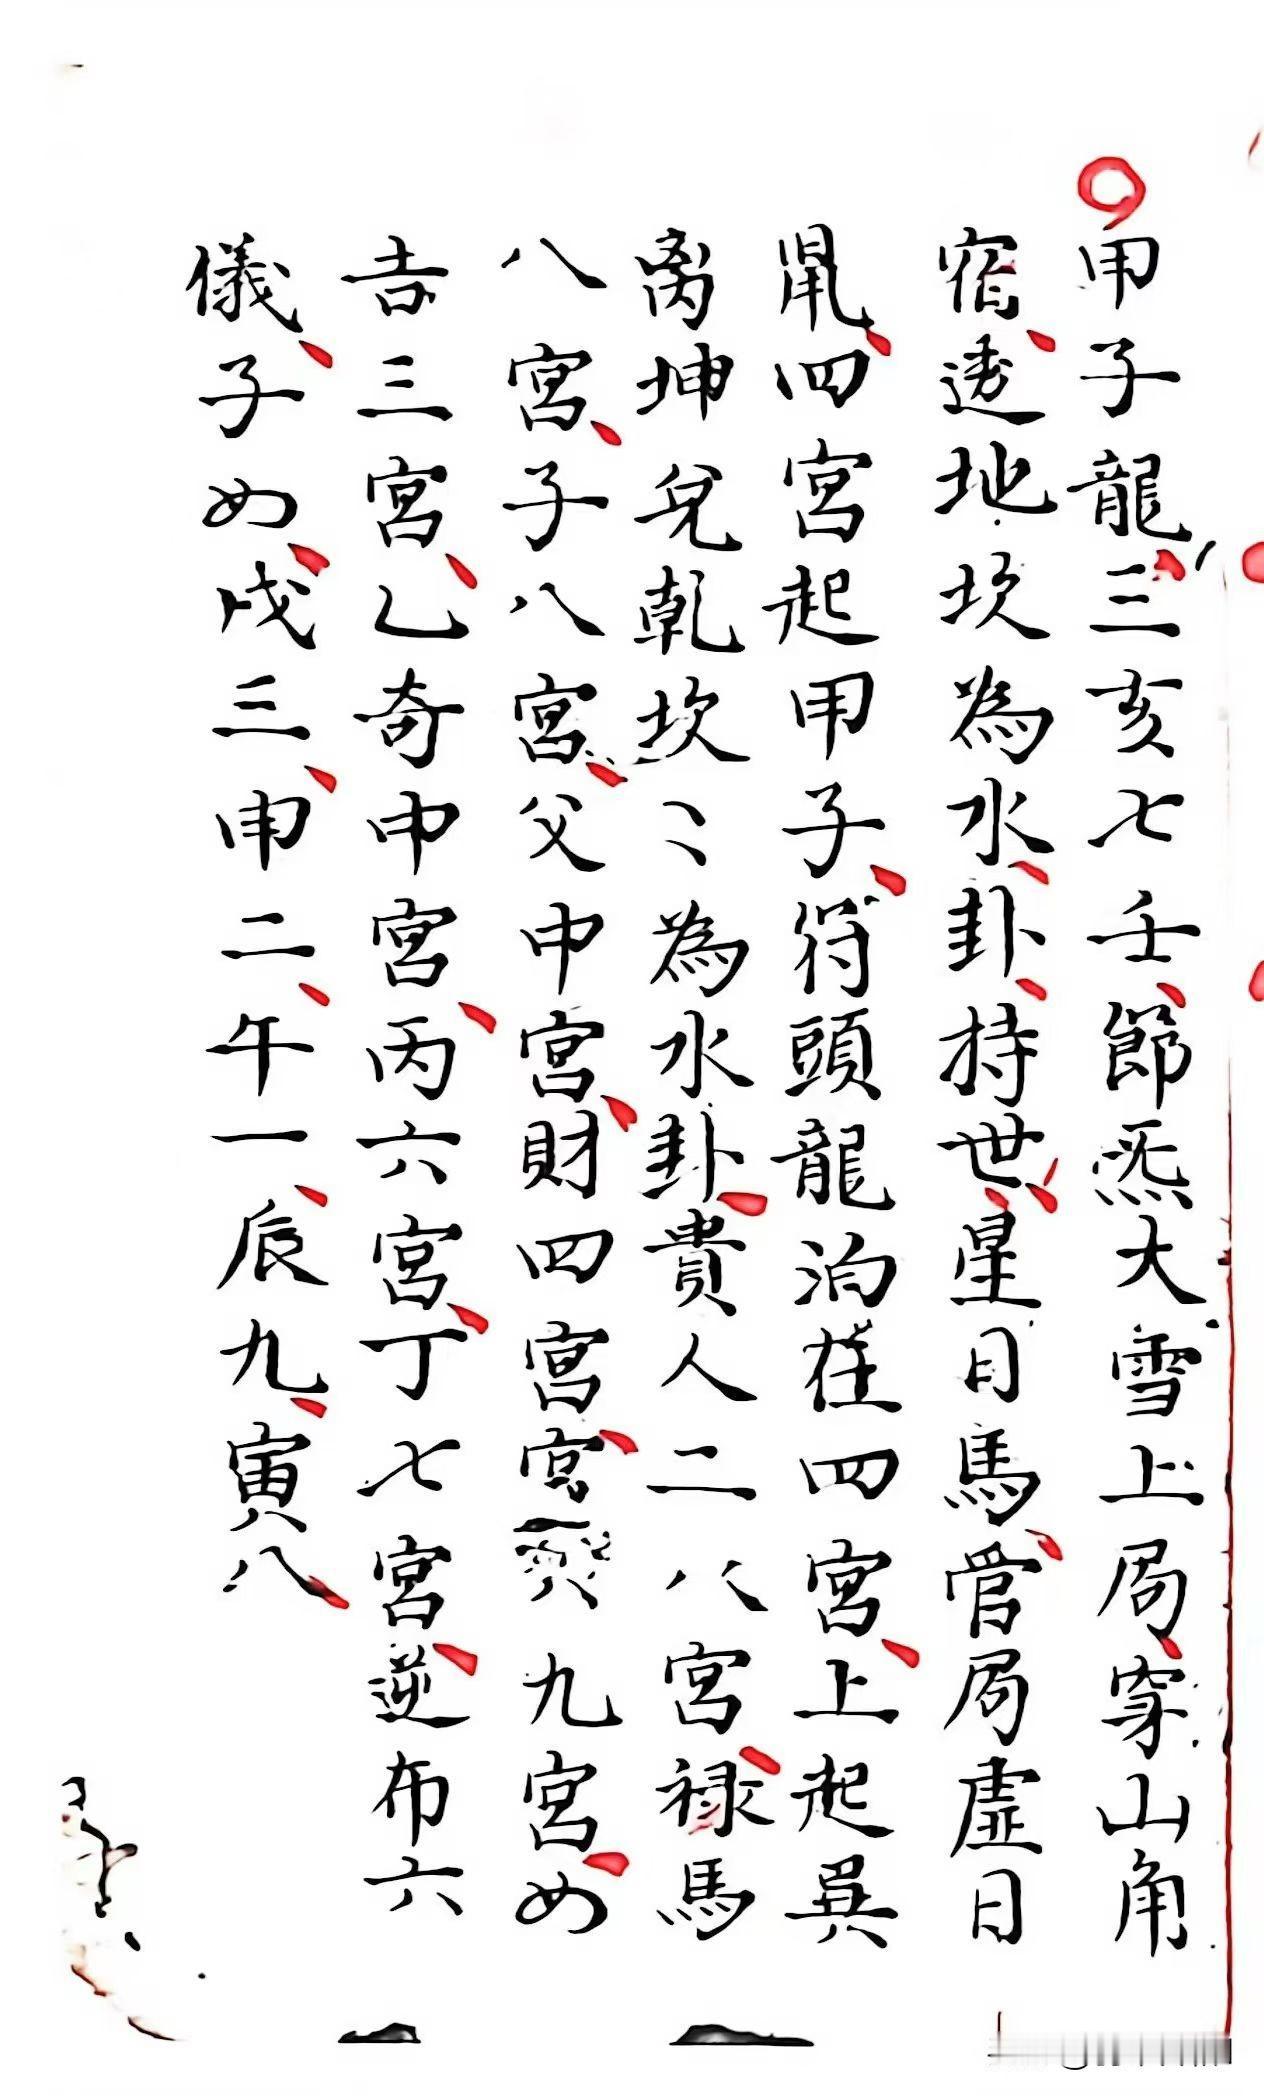 甲子龍三亥七壬節炁大雪上局穿山角
宿透地坎為水卦持世星日馬管局虛日
鼠四宮起甲子符頭龍泊在四宮上起巽
离坤兌乾坎〻為水卦貴人二八宮禄馬
八宮子八宮父中宮財四宮官九宮四
吉三宮乙奇中宮丙六宮丁七宮逆布六
儀子四戌三申二午一辰九寅八